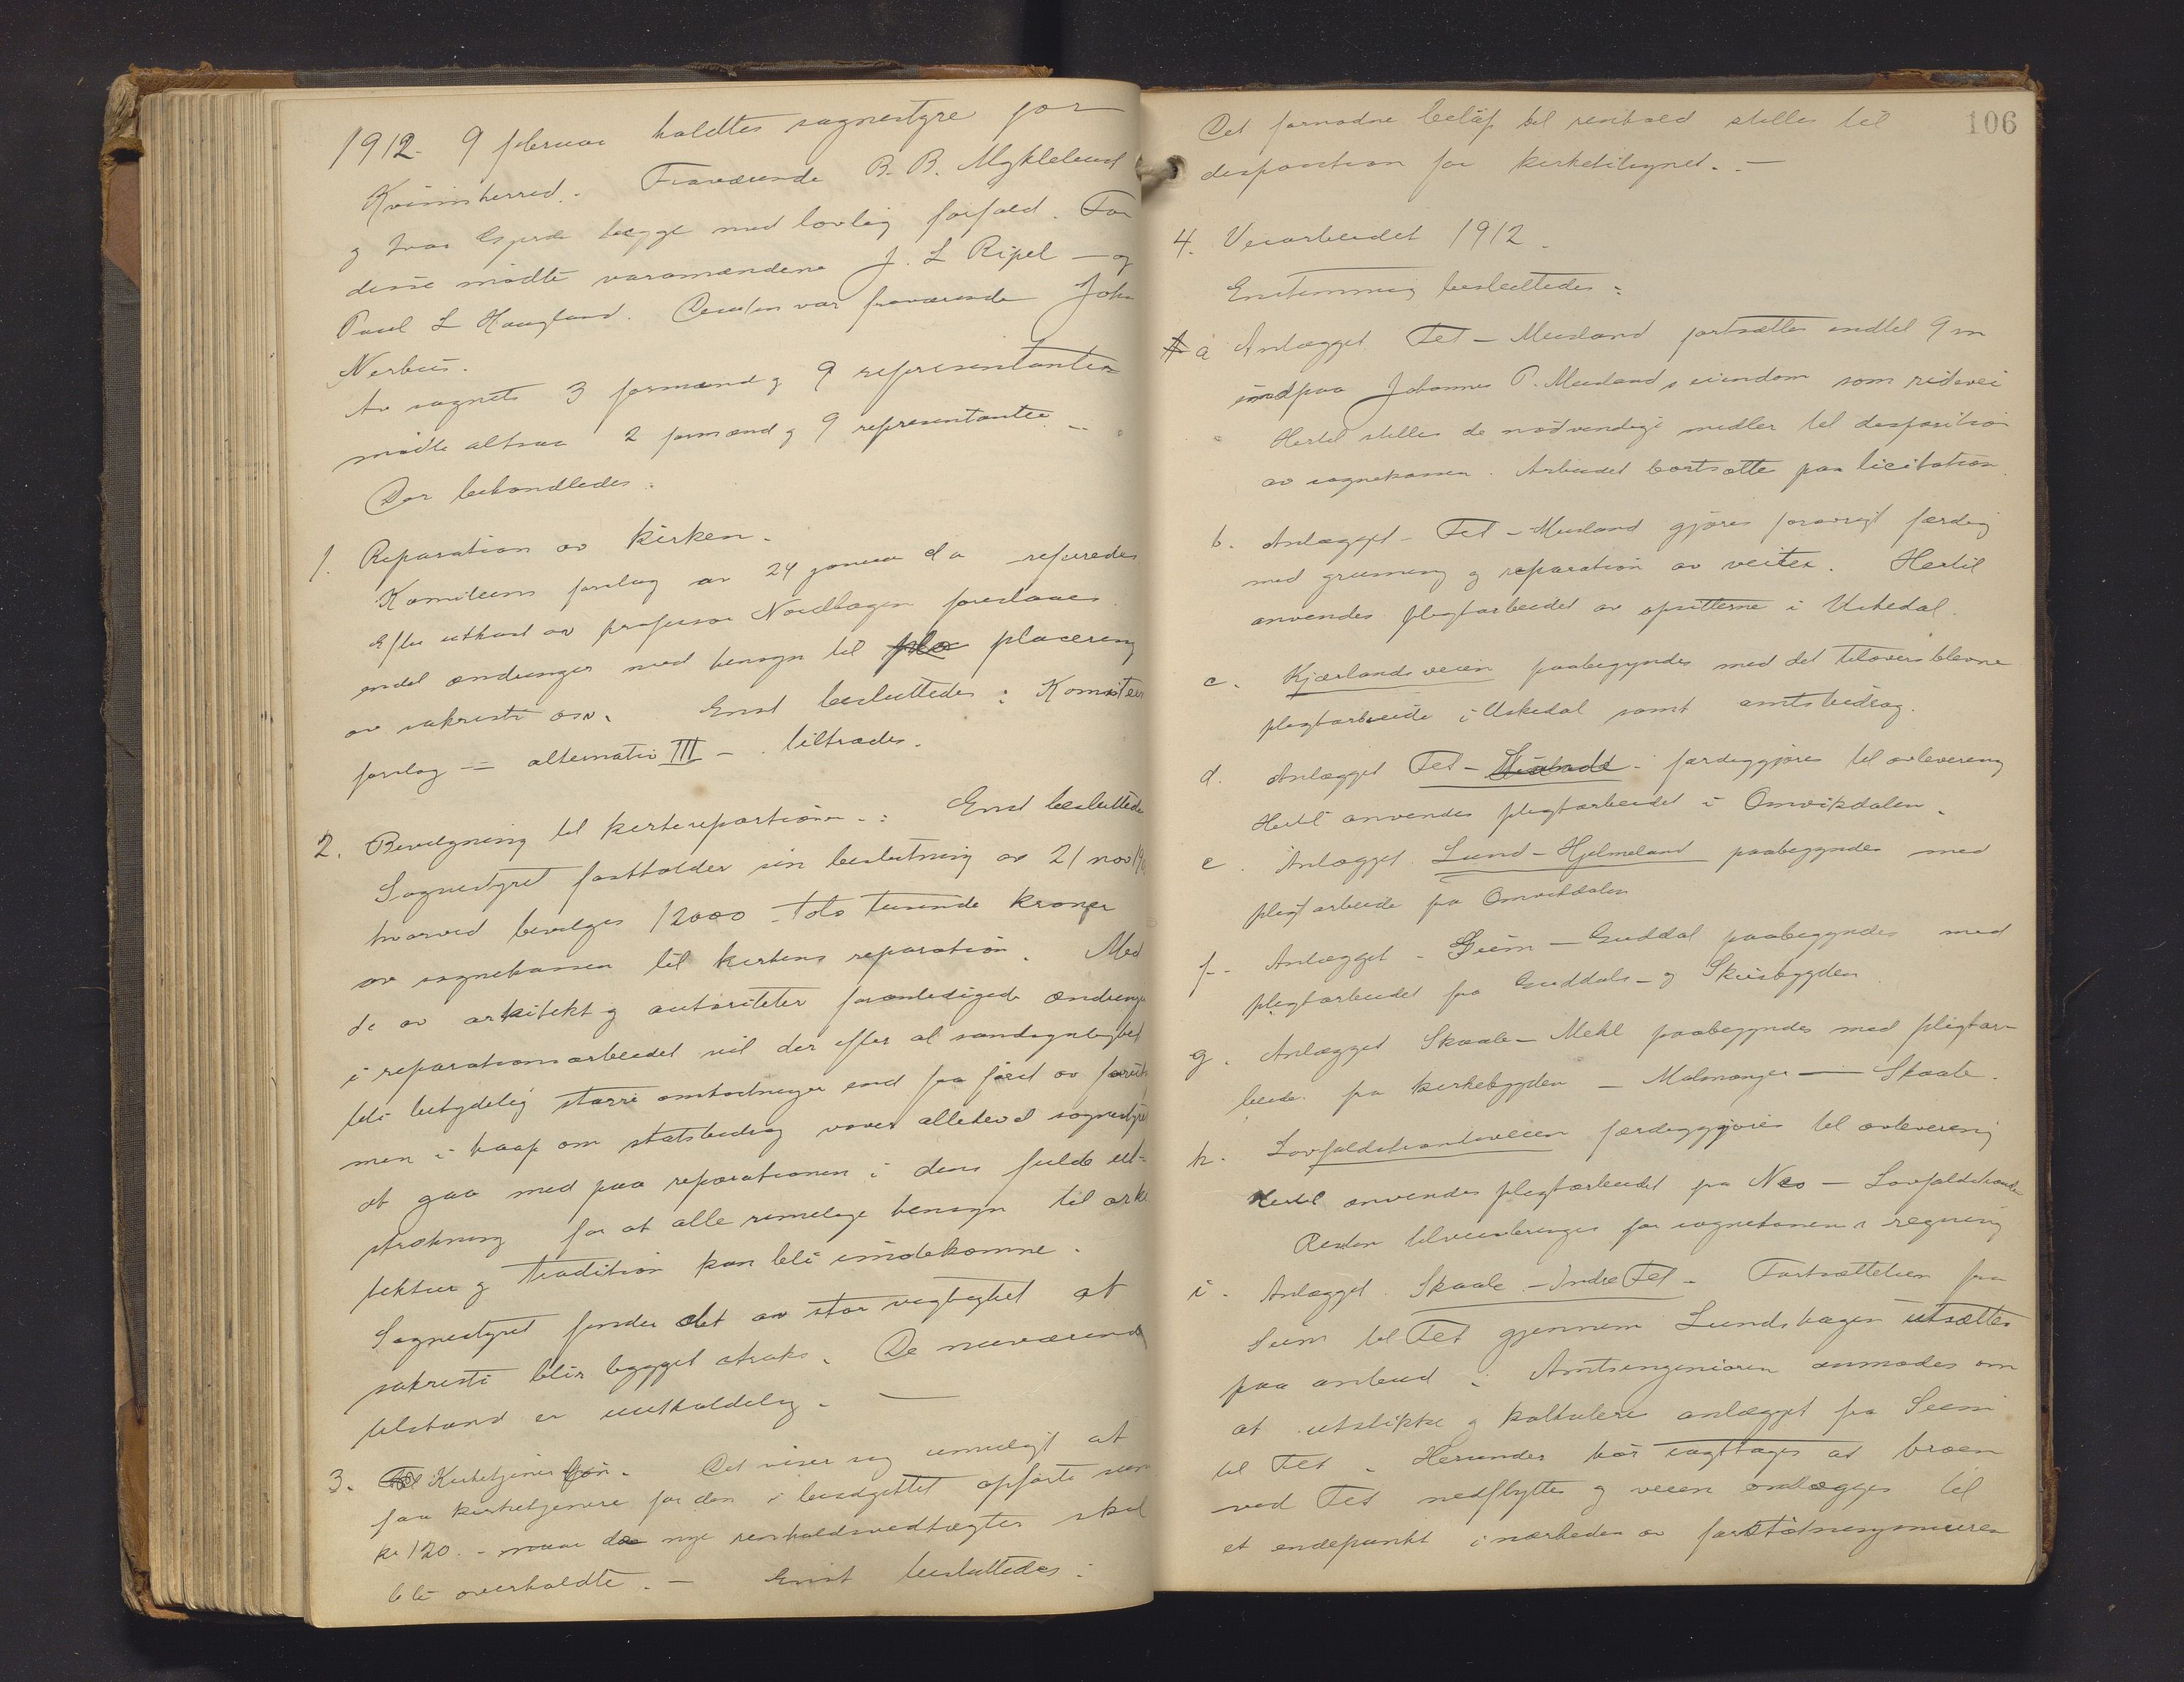 1912. 9 februar holdtes sognestyre for
Kvinnherred. Fraværende B. B. Myklebust
og Ivar begge med lovlig forfald. For
disse mødte varamændene J. L Ripel — og
Paul L Haugland. Desuten var fraværende John
Nerhus.
Av sognets 3 formænd og 9 representanter
mødte altsaa 2 formænd og 9 representanter. —
Der behandledes:
1. Reparation av kirken.
Komiteens forslag av 24 januar d a refereredes
Efter utkast av professor Nordhagen foreslaaes
endel ændringer med hensyn til placering
av sakristi osv. Enst besluttedes: Komiteens
forslag — alternativ III — tiltrædes.
2. Bevilgning til kirkerepartionen.: Enst besluttedes
Sognestyret fastholder sin beslutning av 21 nov 19
hvorved bevilges 12000 - tolv tusende kroner
av sognekassen til kirkens reparation. Med
de av arkitekt og autoriteter foranledigede ændringer
i reparationsarbeidet vil der efter al sandsynlighet
bli betydelig større omkostninger end fra først av forutsat
men i haap om statsbidrag vover allikevel sognestyret
at gaa med paa reparationen i dens fulde ut-
strækning for at alle rimelige hensyn til arki
tektur og tradition kan bli imøtekomne.
Sognestyret finder det av stor vigtighet at
sakristi blir bygget straks. De nuværende
tilstand er uutholdelig. —
3. Kirketjener løn. Det viser sig umuligt at
faa kirketjenere for den i budgettet opførte sum
kr 120. - naar de nye renholdsvedtægter skal
bli overholdte. — Enst besluttedes:
106
Det fornødne beløp til renhold stilles til
desposition for kirketilsynet. —
4. Veiarbeidet 1912.
Enstemmig besluttedes:
a Anlægget Fet - Musland fortsættes indtil 9 m
indpaa Johannes P. Muslands eiendom som ridevei
Hertil stilles de nødvendige midler til desposition
av sognekassen. Arbeidet bortsættes paa licitation.
b. Anlægget Fet - Musland gjøres forøvrigt færdig
med grusning og reparation av veiter. Hertil
anvendes pligtarbeidet av opsitterne i Uskedal.
c. Kjærlandsveien paabegyndes med det tiloversblevne
pligtarbeide i Uskedal samt amtsbidrag.
d. Anlægget Fet - færdiggjøres til avlevering
Hertil anvendes pligtarbeidet i Omvikdalen.
e. Anlægget Lund - Hjelmeland paabegyndes med
pligtarbeide fra Omvikdalen
f. Anlægget - Seim - Guddal paabegyndes med
pligtarbeidet fra Guddals - og Skeisbygden.
g. Anlægget Skaale - Mehl paabegyndes med pligtar-
beide fra kirkebygden — Malmanger — Skaale.
h. Lovfaldstrandeveien færdiggjøres til avlevering
Hertil anvendes pligtarbeidet fra Nes - Lovfaldstranden
Resten tilveiebringes for sognekassens regning
i. Anlægget Skaale - Indre Fet. Fortsættelsen fra
Seim til Fet gjennem Lundshagen utsættes
paa anbud. Amtsingeniøren anmodes om
at utstikke og kalkulere anlægget fra Seim
til Fet. Herunder bør iagttages at broen
ved Fet nedflyttes og veien omlægges til
et endepunkt i nærheden av forstøtnesmuren